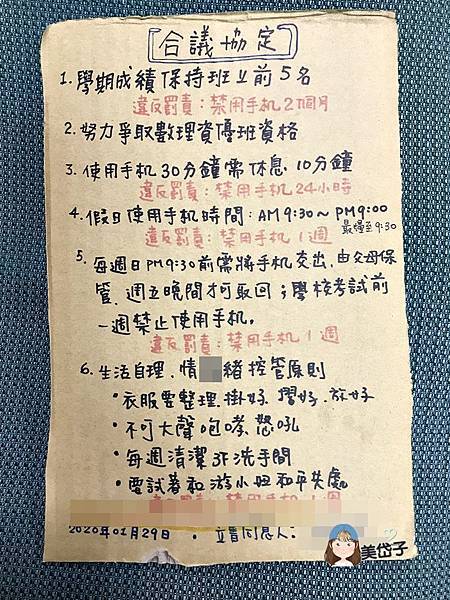 [合議協定]
1. 學期成績保持班上前5名
違反罰責：禁用手机2個月
2. 努力爭取數理資優班資格
3. 使用手机30分鐘需休息10分鐘
違反罰責：禁用手机24小時
4. 假日使用手机時間：AM9:30～PM9:00
最慢至9:30
違反罰責：禁用手机1週
5. 每週日PM9:30前需將手机交出，由父母保
管，週五晚間才可取回；學校考試前
一週禁止使用手机。
違反罰責：禁用手机1週
6. 生活自理、情緒控管原則
•衣服要整理、掛好、摺好、放好
•不可大聲咆哮、怒吼
•每週清潔3F洗手間
•要試著和游小妞和平共處
1週
2020年01月29日 • 立書同意人：
美岱子